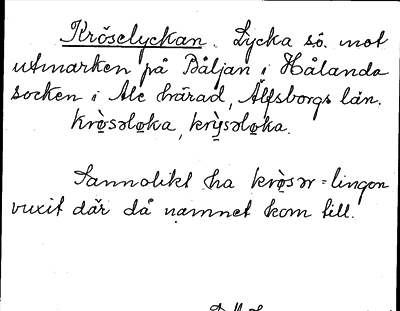 Kröselyckan. Lycka s.ö. mot
utmarken på Båljan i Hålanda
socken i Ale härad, Älfsborgs län.
krọ̀səlọka, krỵ̀səlọka.
Sannolikt ha krọ̀sər = lingon
vuxit där då namnet kom till.